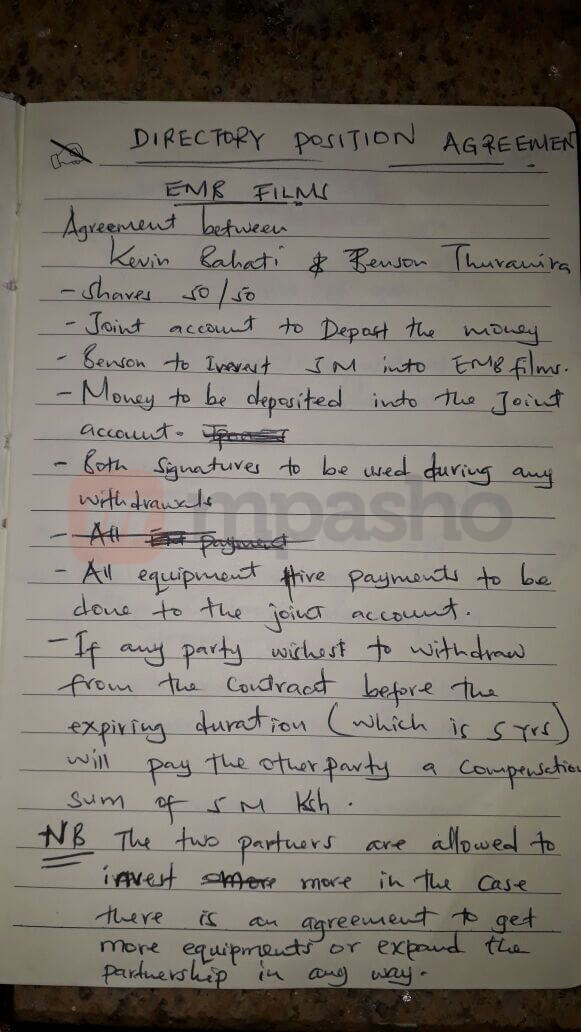 DIRECTORY POSITION AGREEMENT
EMB FILMS
Agreement between
Kevin Bahati & Benson Thuranira
- Shares 50/50
- Joint account to Deposit the money
- Benson to Invest 5M into EMB films.
- Money to be deposited into the Joint
account.
- Both Signatures to be used during any
withdrawals
mpasho
- All payment
- All equipment Hire payments to be
done to the joint account.
- If any party wishest to withdraw
from the contract before the
expiring duration (which is 5 yrs)
will pay the other party a compensation
sum of 5 M Ksh.
NB The two partners are allowed to
invest more more in the case
there is an agreement to get
more equipments or expand the
partnership in any way.